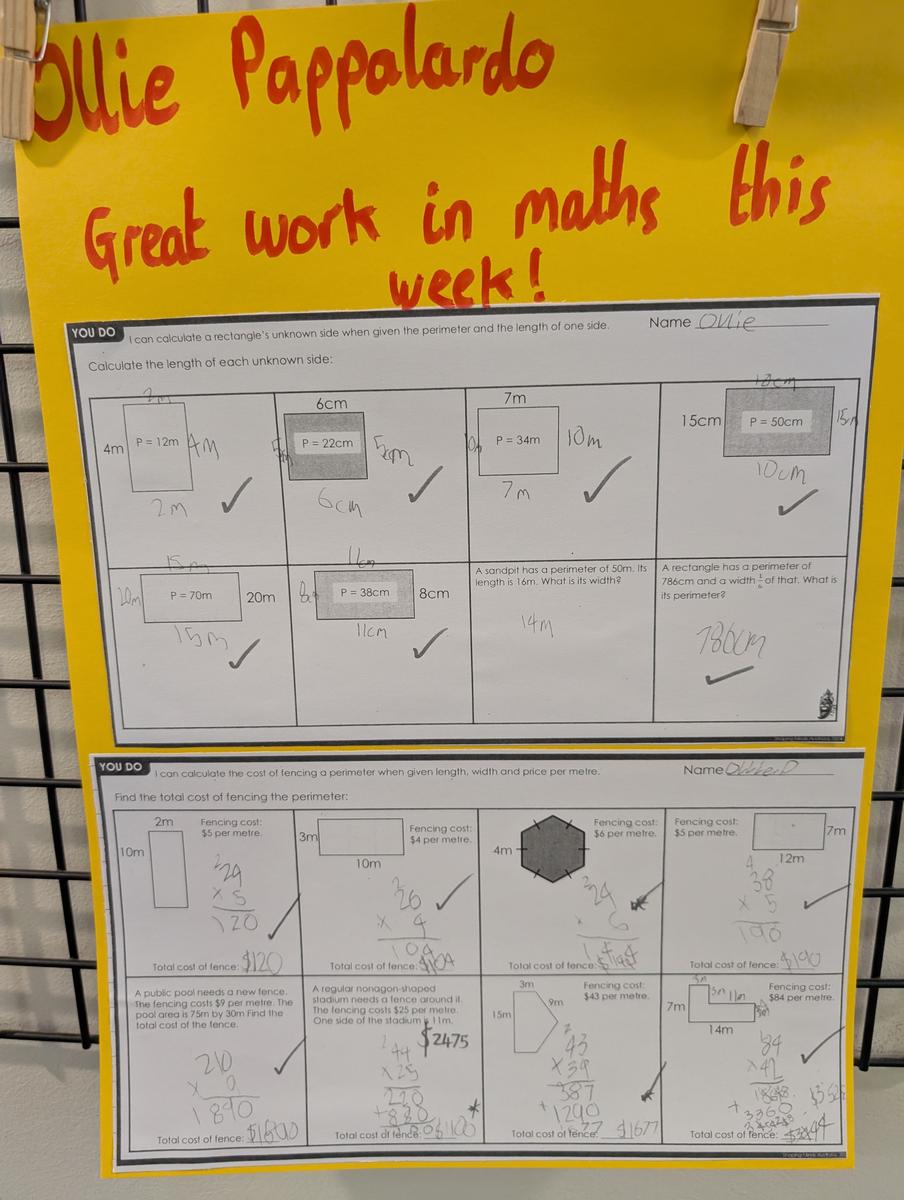 Ollie Pappalardo
Great work in maths this
week!
YOU DO
I can calculate a rectangle's unknown side when given the perimeter and the length of one side.
Name Ollie
Calculate the length of each unknown side:
2m
4m
P = 12m
4m
2m
6cm
P = 22cm
5cm
6cm
7m
P = 34m
10m
7m
10cm
15cm
P = 50cm
10cm
15m
20m
P = 70m
20m
15m
11cm
P = 38cm
8cm
11cm
A sandpit has a perimeter of 50m. Its
length is 16m. What is its width?
14m
A rectangle has a perimeter of
786cm and a width 1/6 of that. What is
its perimeter?
786cm
YOU DO
I can calculate the cost of fencing a perimeter when given length, width and price per metre.
Name
Find the total cost of fencing the perimeter:
2m
10m
Fencing cost:
$5 per metre.
24
x 5
120
Total cost of fence: $120
3m
10m
Fencing cost:
$4 per metre.
2
26
x 4
104
Total cost of fence: $104
4m
Fencing cost:
$6 per metre.
2
24
x 6
Total cost of fence:
Fencing cost:
$5 per metre.
7m
12m
4
38
x 5
190
Total cost of fence: $190
A public pool needs a new fence.
The fencing costs $9 per metre. The
pool area is 75m by 30m Find the
total cost of the fence.
210
x 9
1890
Total cost of fence: $1890
A regular nonagon-shaped
stadium needs a fence around it.
The fencing costs $25 per metre.
One side of the stadium is 11m.
$2475
44
x 25
220
+ 880
Total cost of fence: $1100
3m
15m
9m
Fencing cost:
$43 per metre.
2
43
x 39
387
+ 1290
1677
Total cost of fence: $1677
3m
7m
11m
14m
Fencing cost:
$84 per metre.
84
x 42
+ 3360
Total cost of fence: